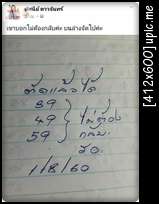 เขาบอกไม่ต้องกลับค่ะ บนล่างจัดไปค่ะ
ตัดแล้วได้
89
49 ไม่ต้อง
59 กลับ
50.
1/8/60
[412x600] upic.me